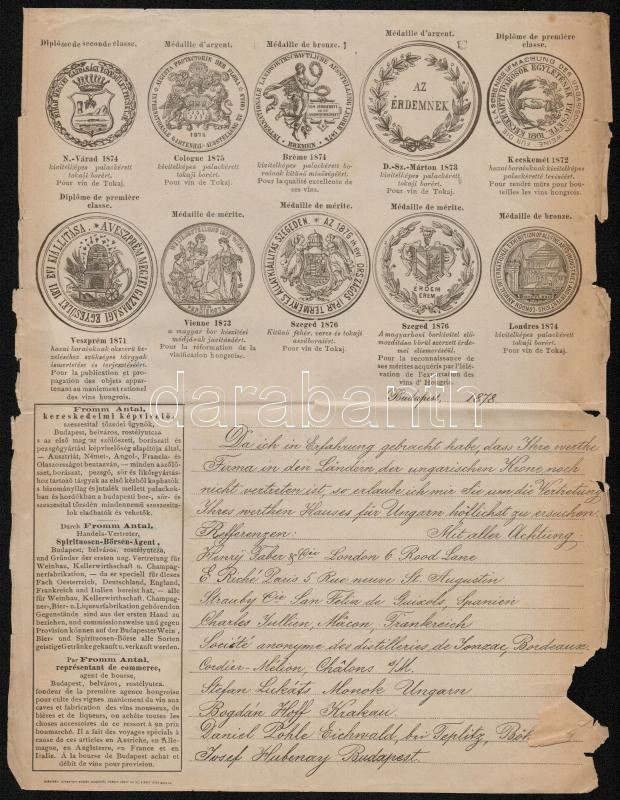 Diplôme de seconde classe.
Médaille d'argent.
Médaille de bronze.
Médaille d'argent.
Diplôme de première
classe.
AZ
ÉRDEMNEK
1875
BREMEN
N.-Várad 1874
kivitelképes palackérett
tokaji borért.
Pour vin de Tokaj.
Cologne 1875
kivitelképes palackérett
tokaji borért.
Pour vin de Tokaj.
Brême 1874
kivitelképes palackérett bo-
rainak kitünő minőségéért.
Pour la qualité excellente de
ses vins.
D.-Sz.-Márton 1873
kivitelképes palackérett
tokaji borért.
Pour vin de Tokaj.
Kecskemét 1872
hazai boraink kivitelképes
palackéretté tevéseért.
Pour rendre mûrs pour bou-
teilles les vins hongrois.
Diplôme de première
classe.
Médaille de mérite.
Médaille de mérite.
Médaille de mérite.
Médaille de bronze.
A VESZPRÉM MEGYEI GAZDASÁGI EGYESÜLET 1871 ÉVI KIÁLLITÁSA
AZ 1876 IK ÉVI ORSZÁGOS IPAR TERMÉNY ÉS ÁLLATKIÁLLITÁS SZEGEDEN
ÉRDEM
ÉREM
Veszprém 1871
hazai borainknak okszerü be-
kezeléséhez szükséges tárgyak
ismertetése és terjesztéseért.
Pour la publication et
propagation des objets appar-
tenant au maniement rational
des vins hongrois.
Vienne 1873
a magyar bor készitési
módjának javitásáért.
Pour la réformation de la
vinification hongroise.
Szeged 1876
Kitünő fehér, veres és tokaji
aszúboraiért.
Pour vin de Tokaj.
Szeged 1876
A magyarhoni borkivitel elő-
mozdítása körül szerzett érde-
mei elismeréséül.
Pour la reconnaissance de
ses mérites acquéris par l'élé-
vation de l'exportation des
vins d'Hongrie.
Londres 1874
kivitelképes palackérett
tokaji borért.
Pour vin de Tokaj.
Budapest, 1878.
Fromm Antal,
kereskedelmi képviselő,
szeszesital tőzsdei ügynök,
Budapest, belváros, rostélyutcza,
s az első magyar szőlészeti, borászati és
pezsgőgyártási képviselőség alapitója által,
— Ausztriát, Német-, Angol-, Francia- és
Olaszországot beutazván, — minden a szőlő-
szeti, borászat, pezsgő, sör és likőrgyártás-
hoz tartozó tárgyak az első kézből kaphatók
s bizományilag és jutalék mellett palackok-
ban és hordókban a budapesti bor-, sör- és
szeszital tőzsdén mindennemü szeszita-
lok eladhatók és vehetők.
Durch Fromm Antal,
Handels-Vertreter,
Spirituosen-Börsen-Agent,
Budapest, belváros, rostélyutcza,
und Gründer der ersten ung. Vertretung für
Weinbau, Kellerwirthschaft u. Champag-
nerfabrikation, — da er speciell für dieses
Fach Oesterreich, Deutschland, England,
Frankreich und Italien bereist hat, — alle
für Weinbau, Kellerwirthschaft, Champag-
ner-, Bier- u. Liqueurfabrikation gehörenden
Gegenstände sind aus der ersten Hand zu
beziehen, und commissionsweise und gegen
Provision können auf der Budapester Wein,
Bier- und Spirituosen-Börse alle Sorten
geistige Getränke gekauft u. verkauft werden.
Par Fromm Antal,
représentant de commerce,
agent de bourse,
Budapest, belváros, rostélyutcza.
fondeur de la première agence hongroise
pour culte des vignes, maniement du vin aux
caves et fabrication des vins mousseux, de
bières et de liqueurs, on achète toutes les
choses accessoires de ce ressort à un prix
boumarché. Il a fait des voyages spécials à
cause de ces articles en Autriche, en Alle-
magne, en Angleterre, en France et en
Italie. À la bourse de Budapest achat et
débit de vins pour provision.
Da ich in Erfahrung gebracht habe, dass Ihre werthe
Firma in den Ländern der ungarischen Krone noch
nicht vertreten ist, so erlaube ich mir Sie um die Vertretung
Ihres werthen Hauses für Ungarn höflichst zu ersuchen.
Refferenzen: Mit aller Achtung
Henrÿ Faber & Cie London 6 Rood Lane
E. Riché Paris 5 Rue neuve St. Augustin
Strauby Cie San Felix de Guixols, Spanien
Charles Jullien, Mâcon, Frankreich
Société anonyme des distilleries de Jonzac, Bordeaux.
Cordier-Mélion, Châlons s/M.
Stefan Lukáts Monok Ungarn
Bogdán Hoff Krakau.
Daniel Pohle Eichwald, bei Teplitz, Böh
Josef Hubenay Budapest.
darabanth